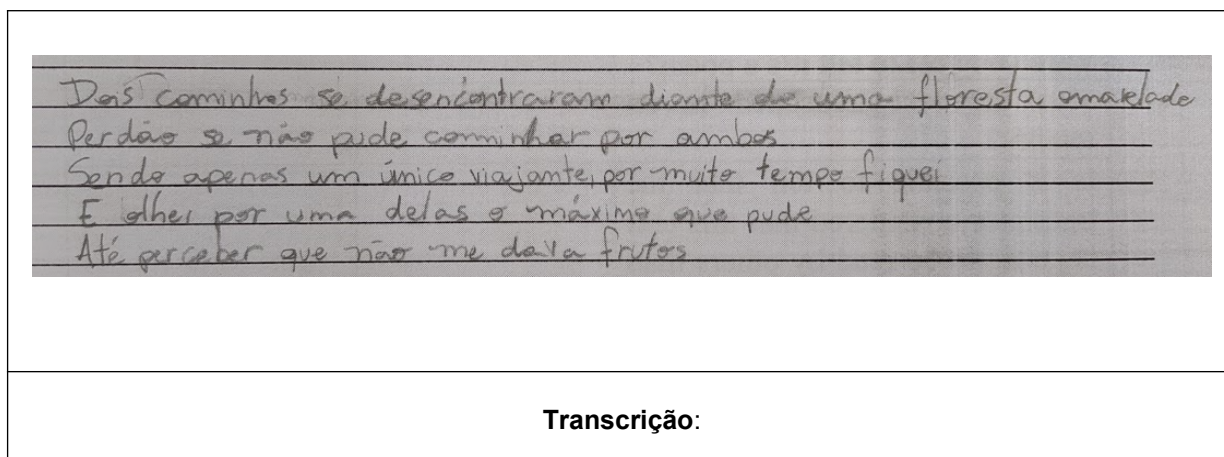 Dois caminhos se desencontraram diante de uma floresta amarelade
Perdão se não pude caminhar por ambos
Sendo apenas um único viajante, por muito tempo fiquei
E olhei por uma delas o máximo que pude
Até perceber que não me dava frutos
Transcrição: